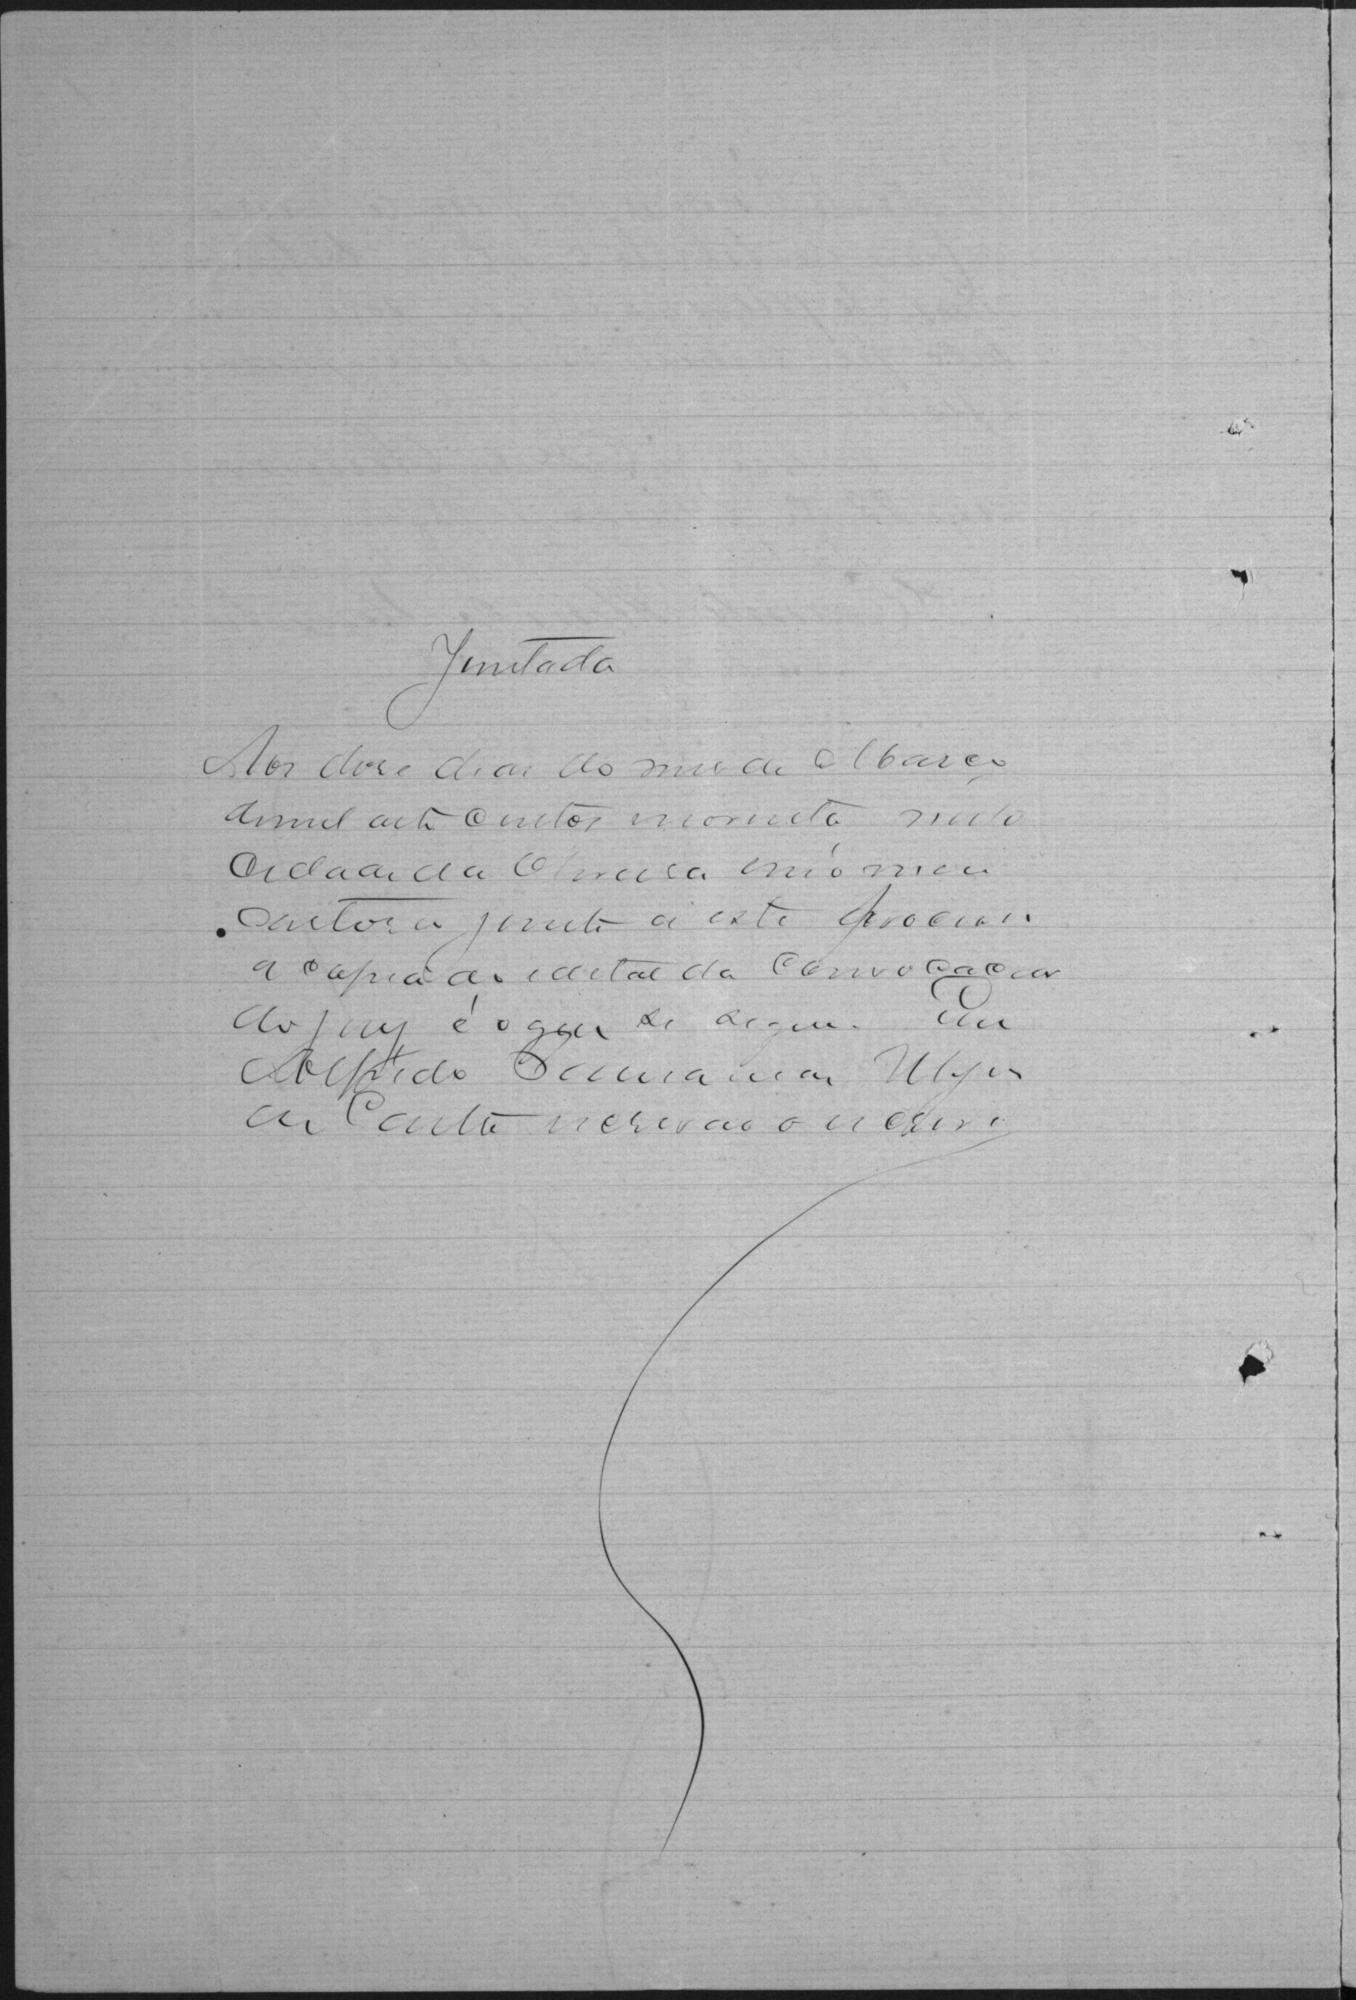 Juntada
Aos dose dias do mes de Março
de mil oito centos noventa nesta
Cidade da em o meu
Cartorio junto a este processo
a copia do edital da convocacão
do jury é o que se segue. Eu
Alfredo Ulysses
da Costa escrivão o escrevi